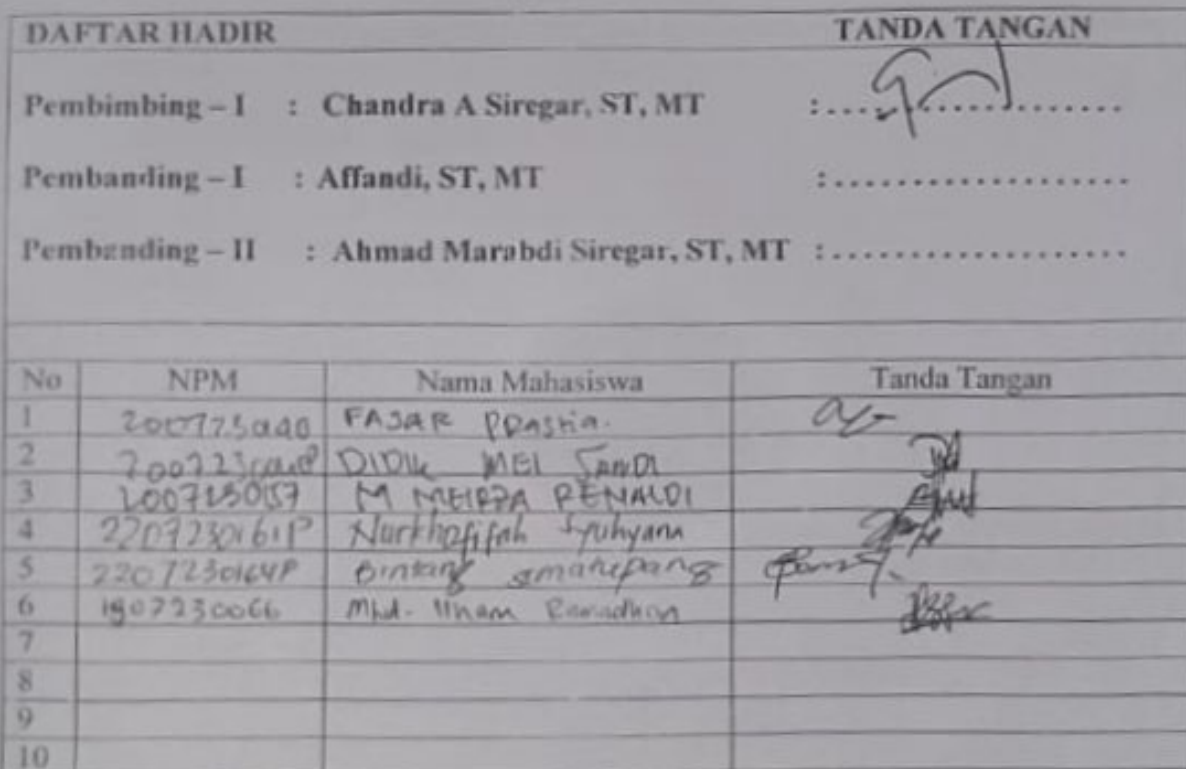 DAFTAR HADIR TANDA TANGAN
Pembimbing – I : Chandra A Siregar, ST, MT :....................
Pembanding – I : Affandi, ST, MT :....................
Pembanding – II : Ahmad Marabdi Siregar, ST, MT :....................
No NPM Nama Mahasiswa Tanda Tangan
1 FASAR
2 DIDIK MEI SANDI
3 2007230157 M MEIRZA RENALDI
4 2207230161P Nurkhafifah Syuhyana
5 2207230164P Bintang
6 1907230066 Mhd. Ilham Ramadhan
7
8
9
10